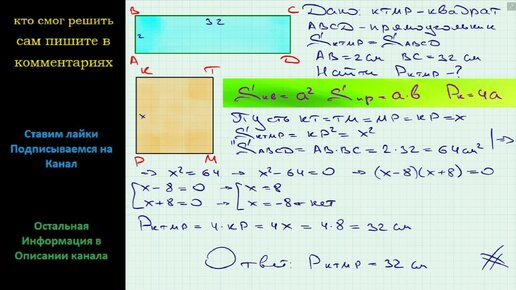 кто смог решить
сам пишите в
комментариях
Ставим лайки
Подписываемся на
Канал
Остальная
Информация в
Описании канала
B 32 C
2
A D
K T
x
P M
Дано: KTMP - квадрат
ABCD - прямоугольник
S KTMP = S ABCD
AB = 2 см BC = 32 см
Найти P KTMP - ?
S кв = a² S пр = a·b P к = 4a
Пусть KT = TM = MP = KP = x
S KTMP = KP² = x²
" S ABCD = AB · BC = 2 · 32 = 64 см² | ⇒
⇒ x² = 64 → x² - 64 = 0 → (x-8)(x+8) = 0
[ x - 8 = 0 → [ x = 8
[ x + 8 = 0 [ x = -8 - нет
P KTMP = 4 · KP = 4x = 4 · 8 = 32 см
Ответ: P KTMP = 32 см